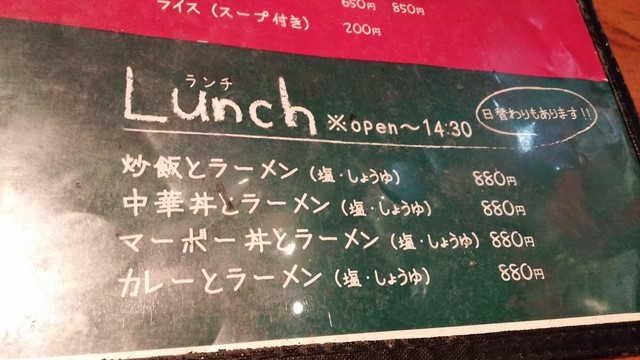 650円 850円
ライス(スープ付き) 200円
ランチ
Lunch ※open～14:30
日替わりもあります!!
炒飯とラーメン(塩・しょうゆ) 880円
中華丼とラーメン(塩・しょうゆ) 880円
マーボー丼とラーメン(塩・しょうゆ) 880円
カレーとラーメン(塩・しょうゆ) 880円